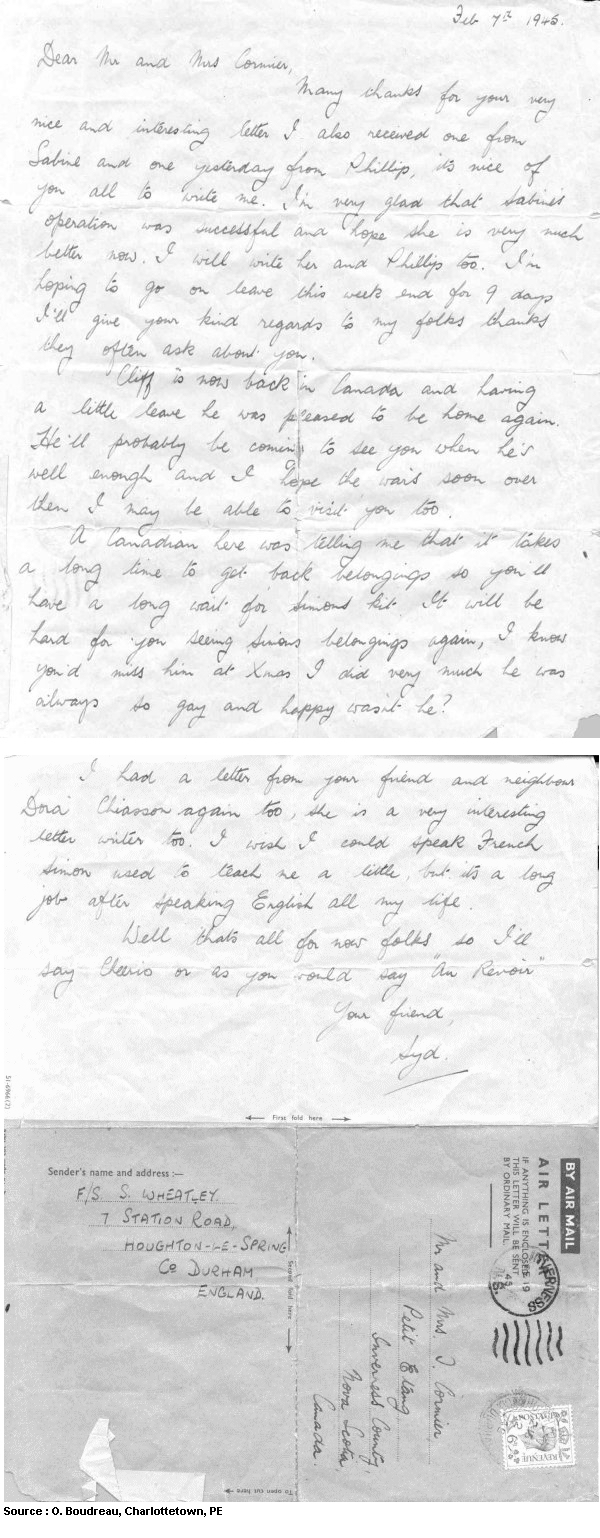 Feb 7th 1945.
Dear Mr and Mrs Cormier,
Many thanks for your very
nice and interesting letter I also received one from
Sabine and one yesterday from Phillip, it's nice of
you all to write me. I'm very glad that Sabine's
operation was successful and hope she is very much
better now. I will write her and Phillip too. I'm
hoping to go on leave this week end for 9 days
I'll give your kind regards to my folks thanks
they often ask about you.
Cliff is now back in Canada and having
a little leave he was pleased to be home again.
He'll probably be coming to see you when he's
well enough and I hope the war's soon over
then I may be able to visit you too.
A Canadian here was telling me that it takes
a long time to get back belongings so you'll
have a long wait for Simons kit. It will be
hard for you seeing Simons belongings again, I know
you'd miss him at Xmas I did very much he was
always so gay and happy wasn't he?
I had a letter from your friend and neighbour
Dora Chiasson again too, she is a very interesting
letter writer too. I wish I could speak French
Simon used to teach me a little, but it's a long
job after speaking English all my life.
Well thats all for now folks so I'll
say Cheerio or as you would say "Au Revoir"
Your friend,
Syd.
51-6966(2)
First fold here
Sender's name and address:—
F/S. S. WHEATLEY.
7 STATION ROAD,
HOUGHTON-LE-SPRING
Co DURHAM
ENGLAND.
Second fold here
BY AIR MAIL
AIR LETTER
IF ANYTHING IS ENCLOSED
THIS LETTER WILL BE SENT
BY ORDINARY MAIL.
INVERNESS
FE 19
45
N.S.
REVENUE
6D
Mr and Mrs. J. Cormier
Petit Etang
Inverness County,
Nova Scotia,
Canada.
To open cut here
Source : O. Boudreau, Charlottetown, PE